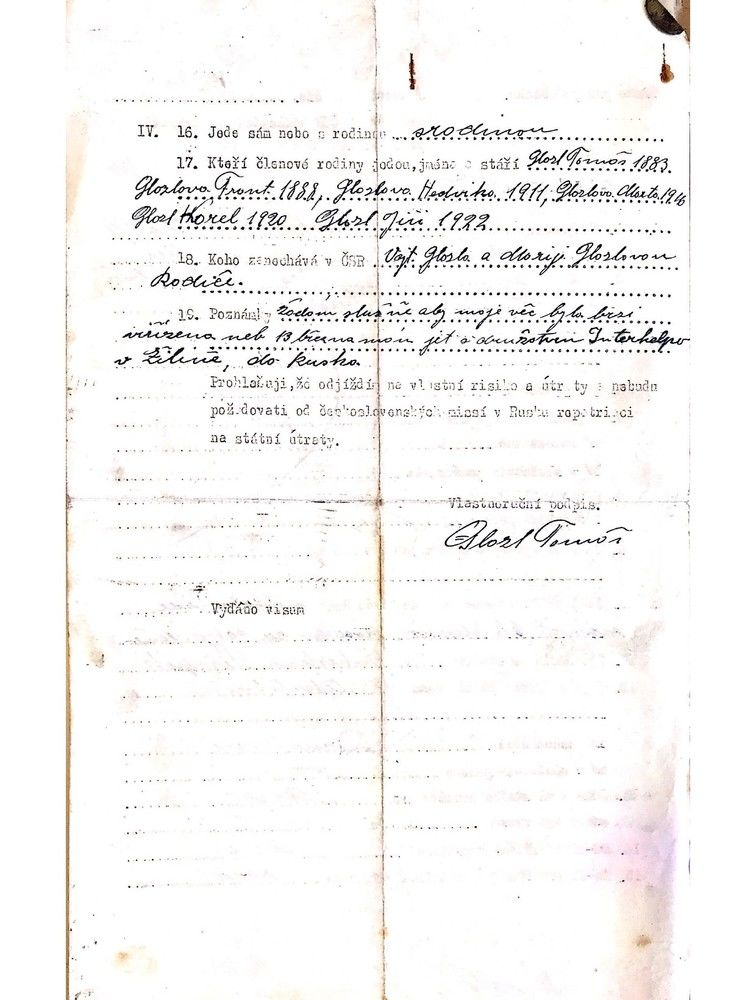 IV. 16. Jede sám nebo s rodinou srodinou
17. Kteří členové rodiny jedou, jména a stáří Glozl Tomáš 1883
Glozlova Frant 1888, Glozlova Hedvika 1911, Glozlova Marta 1916
Glozl Karel 1920 Glozl Jiři 1922
18. Koho zanechává v ČSR Vojt. Glozla a Mariji Glozlovou
Rodiče.
19. Poznámky Žádam slušně aby moje věc byla brzi
viřízena neb 13 března mám jet s družstvem Interhelpo
v Žilině, do Ruska
Prohlašuji, že odjíždím na vlastní risiko a útraty a nebudu
požadovati od československých missí v Rusku repatriaci
na státní útraty.
Vlastnoruční podpis.
Glozl Tomáš
Vydáno visum